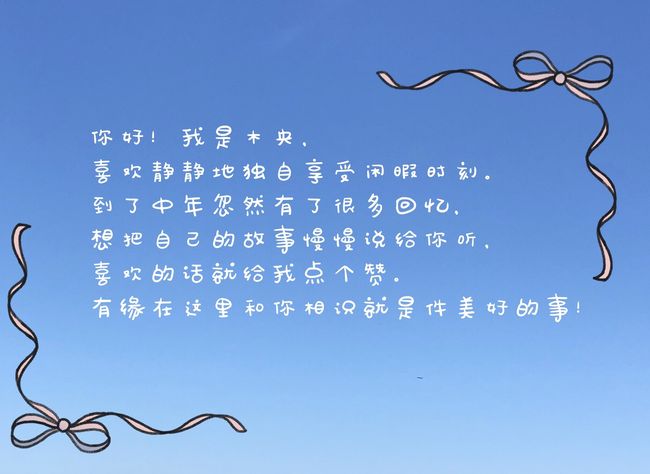 你好！我是木央，
喜欢静静地独自享受闲暇时刻。
到了中年忽然有了很多回忆，
想把自己的故事慢慢说给你听，
喜欢的话就给我点个赞。
有缘在这里和你相识就是件美好的事！